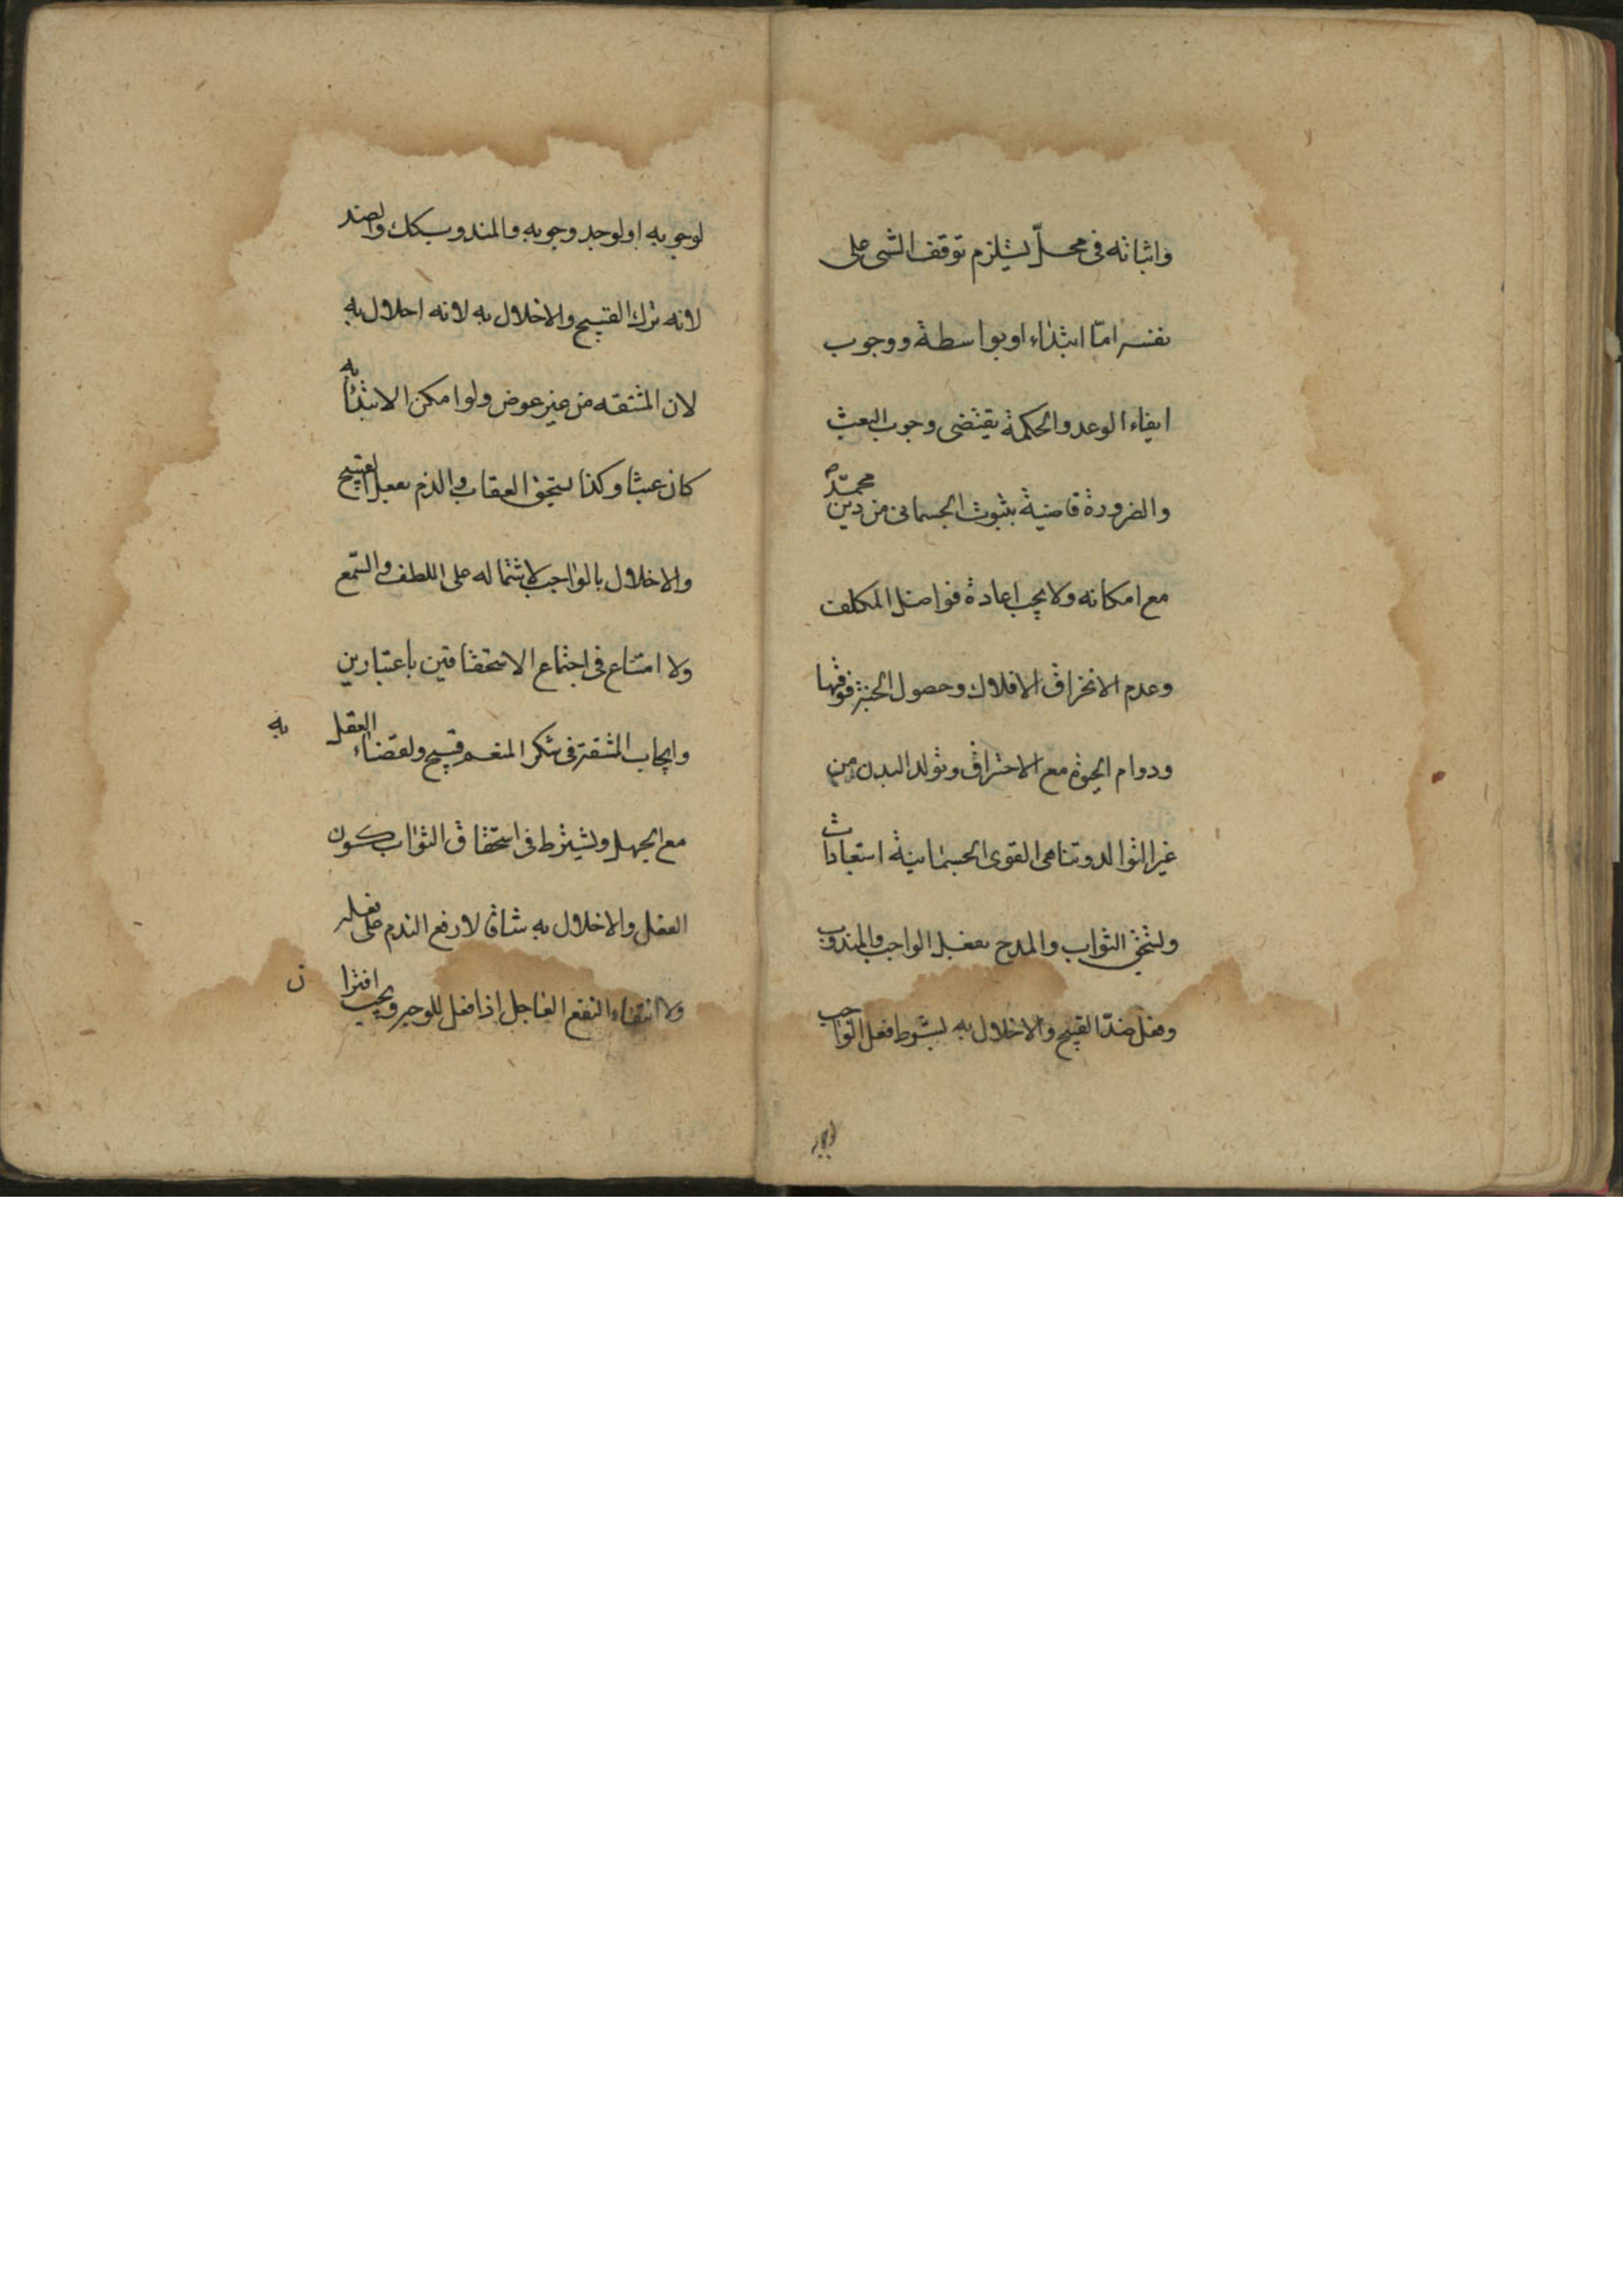 واثباته فى محلّ يستلزم توقف الشى على
نفسه امّا ابتداء او بواسطة ووجوب
ايفاء الوعد والحكمة يقتضى وجوب البعث
والضرورة قاضية بثبوت الجسمانى من دين محمّد ص
مع امكانه ولا يجب اعادة فواضل المكلف
وعدم الانخراق الافلاك وحصول الجنة فوقها
ودوام الحيوة مع الاحتراق وتولد البدن من
غير التوالد وتناهى القوى الجسمانية استبعادات
ويستحق الثواب والمدح بفعل الواجب والمندوب
وفعل ضدّ القبيح والاخلال به بشرط فعل الواجب
لوجوبه او لوجه وجوبه والمندوب كك والضد
لانه ترك القبيح والاخلال به لانه اخلال به
لان المشقه من غير عوض ولو امكن الابتداء به
كان عبثا وكذا يستحق العقاب والذم بفعل القبيح
والاخلال بالواجب لاشتماله على اللطف والسّمع
ولا امتناع فى اجتماع الاستحقاقين باعتبارين
وايجاب المشقة فى شكر المنعم قبيح ولقضاء العقل به
مع الجهل ويشترط فى استحقاق الثواب كون
الفعل والاخلال به شاقا لا رفع الندم على فعله
ولا انتفاء النفع العاجل اذا فعل للوجه ويجب افترا ن